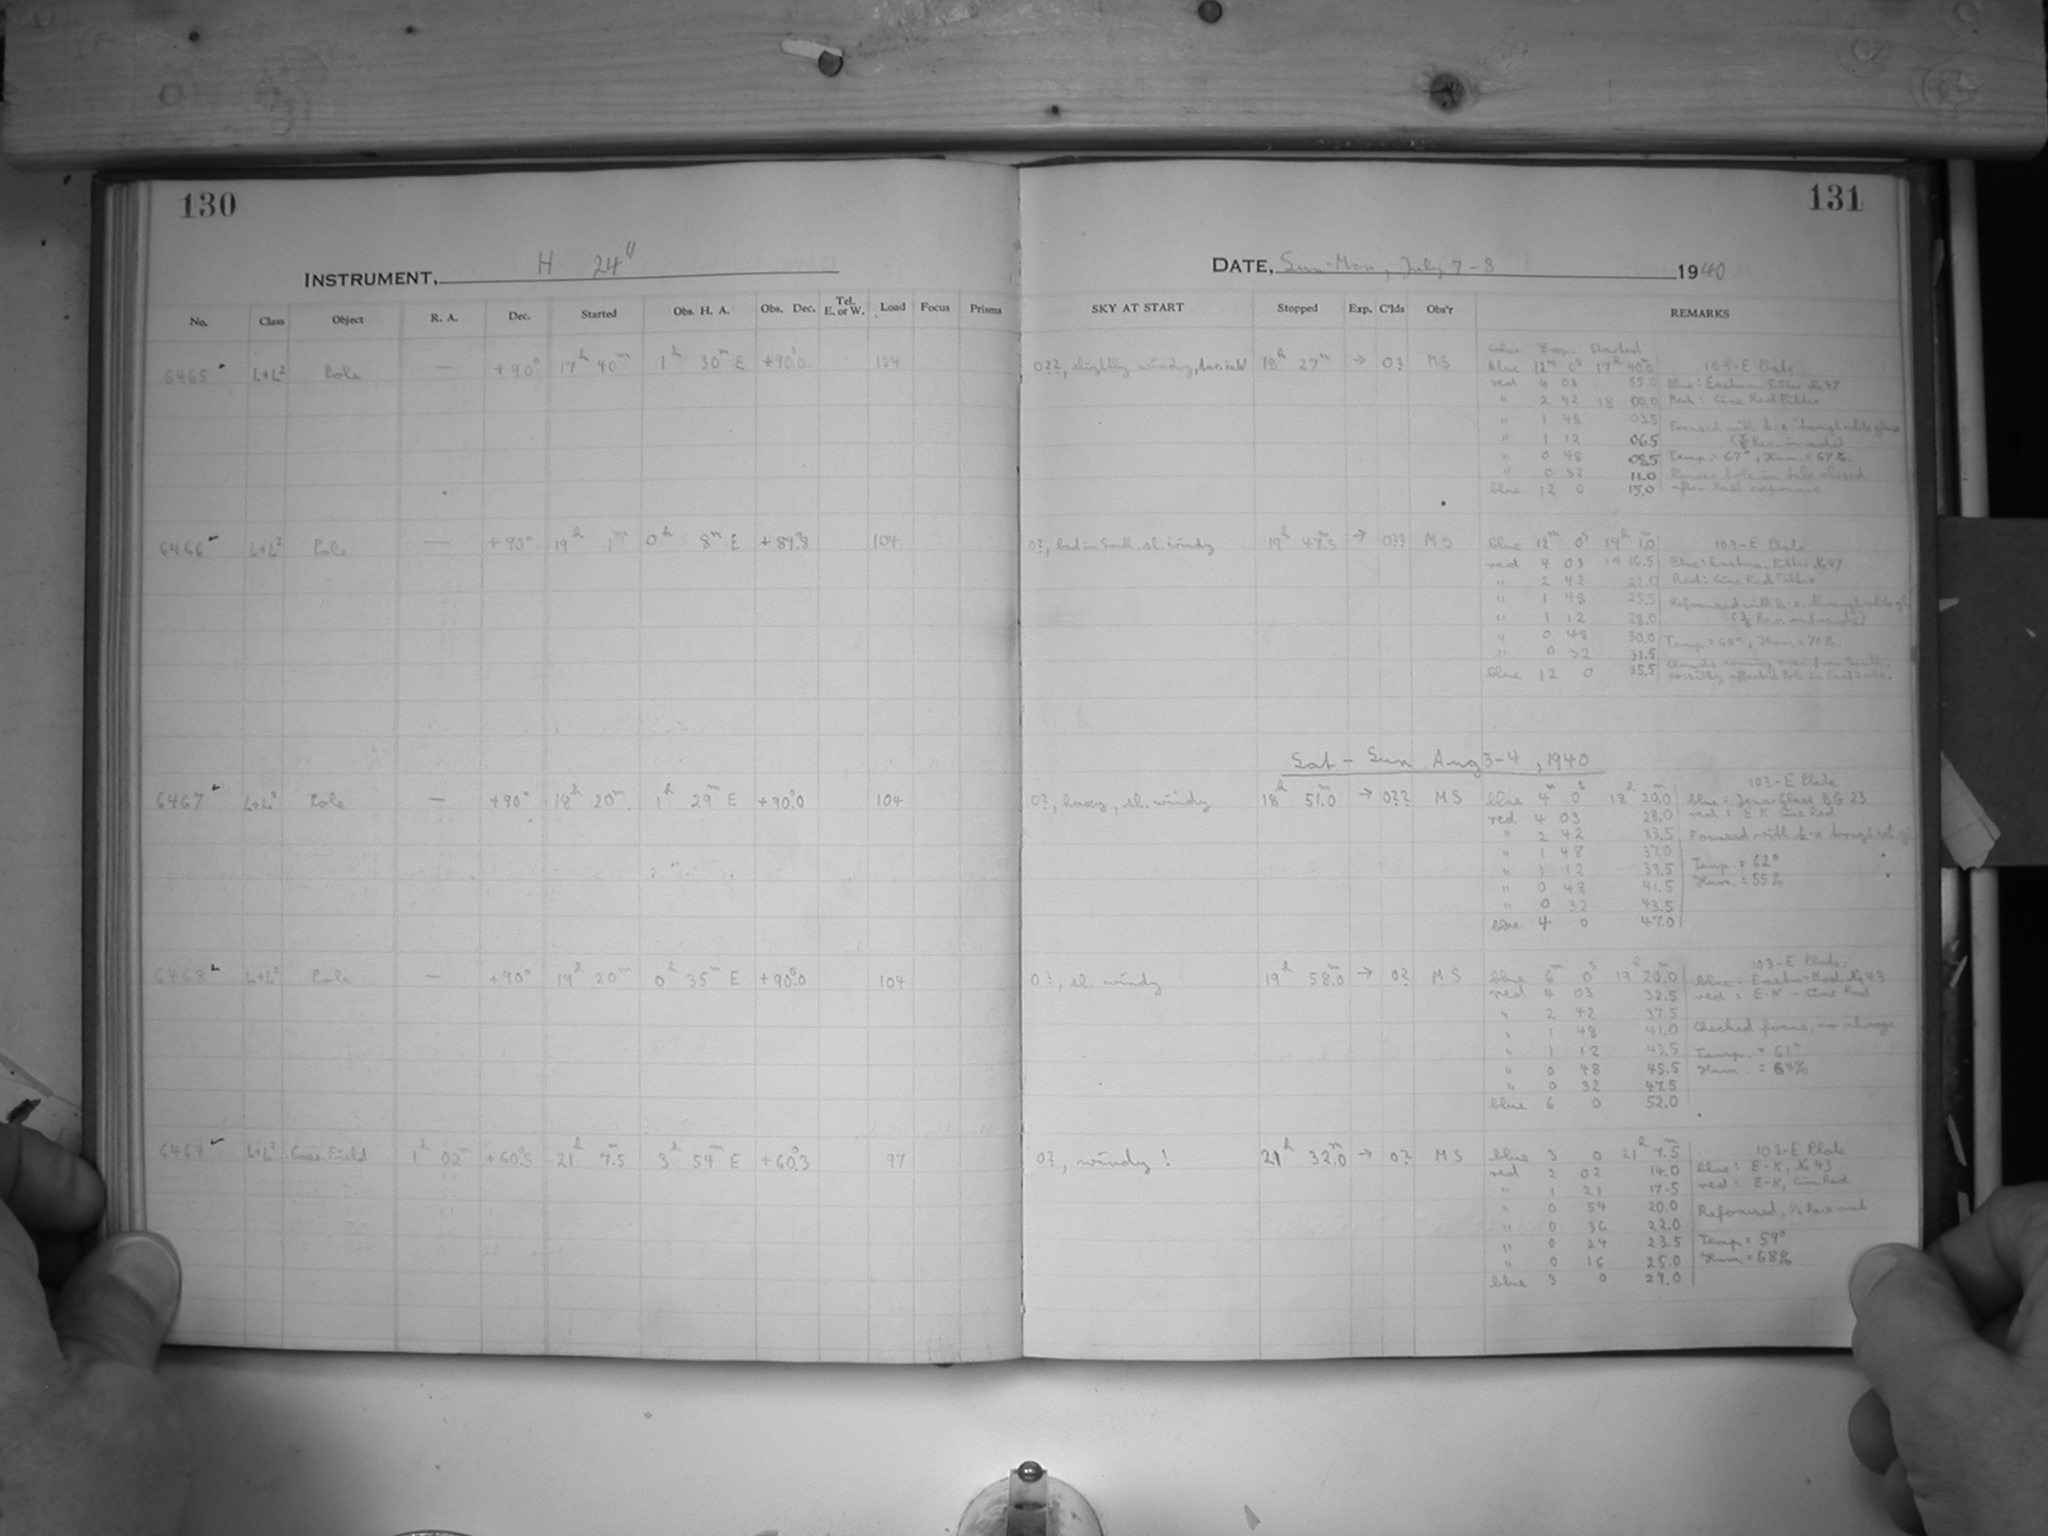 130
INSTRUMENT, H 24"
No. Class Object R. A. Dec. Started Obs. H. A. Obs. Dec. Tel. E. or W. Load Focus Prisms
6465 L+L² Pole — +90° 17h 40m 1h 30m E +90.°0 104
6466 L+L² Pole — +90° 19h 1m 0h 8m E +89.°8 104
6467 L+L² Pole — +90° 18h 20m 1h 29m E +90.°0 104
6468 L+L² Pole — +90° 19h 20m 0h 35m E +90.°0 104
6469 L+L² Cass. Field 1h 02m +60.°3 21h 7.m5 3h 54m E +60.°3 97
131
DATE, Sun-Mon, July 7-8 1940
SKY AT START Stopped Exp. C'lds Obs'r REMARKS
Color Exp. Started
0??, slightly windy, 18h 27m → 0? MS blue 12m 0s 17h 40.0 103-E Plate
red 4 03 55.0 Blue: Eastman Filter No 47
" 2 42 18 00.0 Red: Cine Red Filter
" 1 48 03.5 Focused with
" 1 12 06.5
" 0 48 08.5 Temp = 67°, Hum. = 67%.
" 0 32 11.0 hole in tube closed
blue 12 0 15.0 after last exposure
0?, bad in South, sl. windy 19h 47.m5 → 0?? MS blue 12m 0s 19h 1.m0 103-E Plate
red 4 03 19 16.5 Blue: Eastman Filter No 47
" 2 42 22.0 Red: Cine Red Filter
" 1 48 25.5 Refocused with
" 1 12 28.0
" 0 48 30.0 Temp = 64°, Hum. = 70%.
" 0 32 31.5 Clouds coming over from South,
blue 12 0 35.5
Sat - Sun Aug 3-4, 1940
103-E Plate
0?, hazy, sl. windy 18h 51.m0 → 0?? MS blue 4m 0s 18h 20.m0 blue: Jena Glass BG 23
red 4 03 28.0 red: E-K Cine Red
" 2 42 33.5 Focused with
" 1 48 37.0
" 1 12 39.5 Temp. = 62°
" 0 48 41.5 Hum. = 55%
" 0 32 43.5
blue 4 0 47.0
103-E Plate:
0?, sl. windy 19h 58.m0 → 0? MS blue 6m 0s 19h 20.m0 blue: No 43
red 4 03 32.5 red: E-K - Cine Red
" 2 42 37.5
" 1 48 41.0 Checked focus, no change
" 1 12 43.5 Temp. = 61°
" 0 48 45.5 Hum. = 64%
" 0 32 47.5
blue 6 0 52.0
0?, windy! 21h 32.m0 → 0? MS blue 3 0 21h 7.m5 103-E Plate
red 2 02 14.0 blue: E-K, No 43
" 1 21 17.5 red: E-K, Cine Red
" 0 54 20.0 Refocused, ½ Rev. out
" 0 36 22.0
" 0 24 23.5 Temp = 59°
" 0 16 25.0 Hum = 68%
blue 3 0 29.0